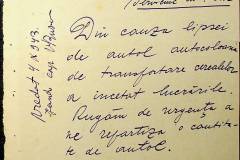 Din cauza lipsei
de autol autocoloana
de transportare cerealelor
a incetat lucrările.
Rugăm de urgenta a
ne repartiza o cantita-
te de autol.